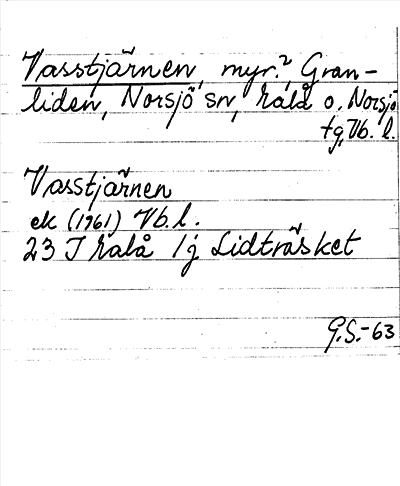 Vasstjärnen, myr.², Gran-
liden, Norsjö sn, Malå o. Norsjö
tg, Vb. l.
Vasstjärnen
ek (1961) Vb. l.
23 J Malå 1j Lidträsket
G.S.-63